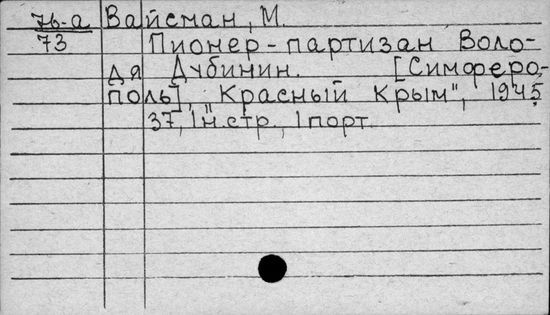 74-а Вайсман, М.
73 Пионер-партизан Воло-
дя Дубинин. [Симферо-
поль], "Красный Крым", 1945
37, 1 н. стр., 1 порт